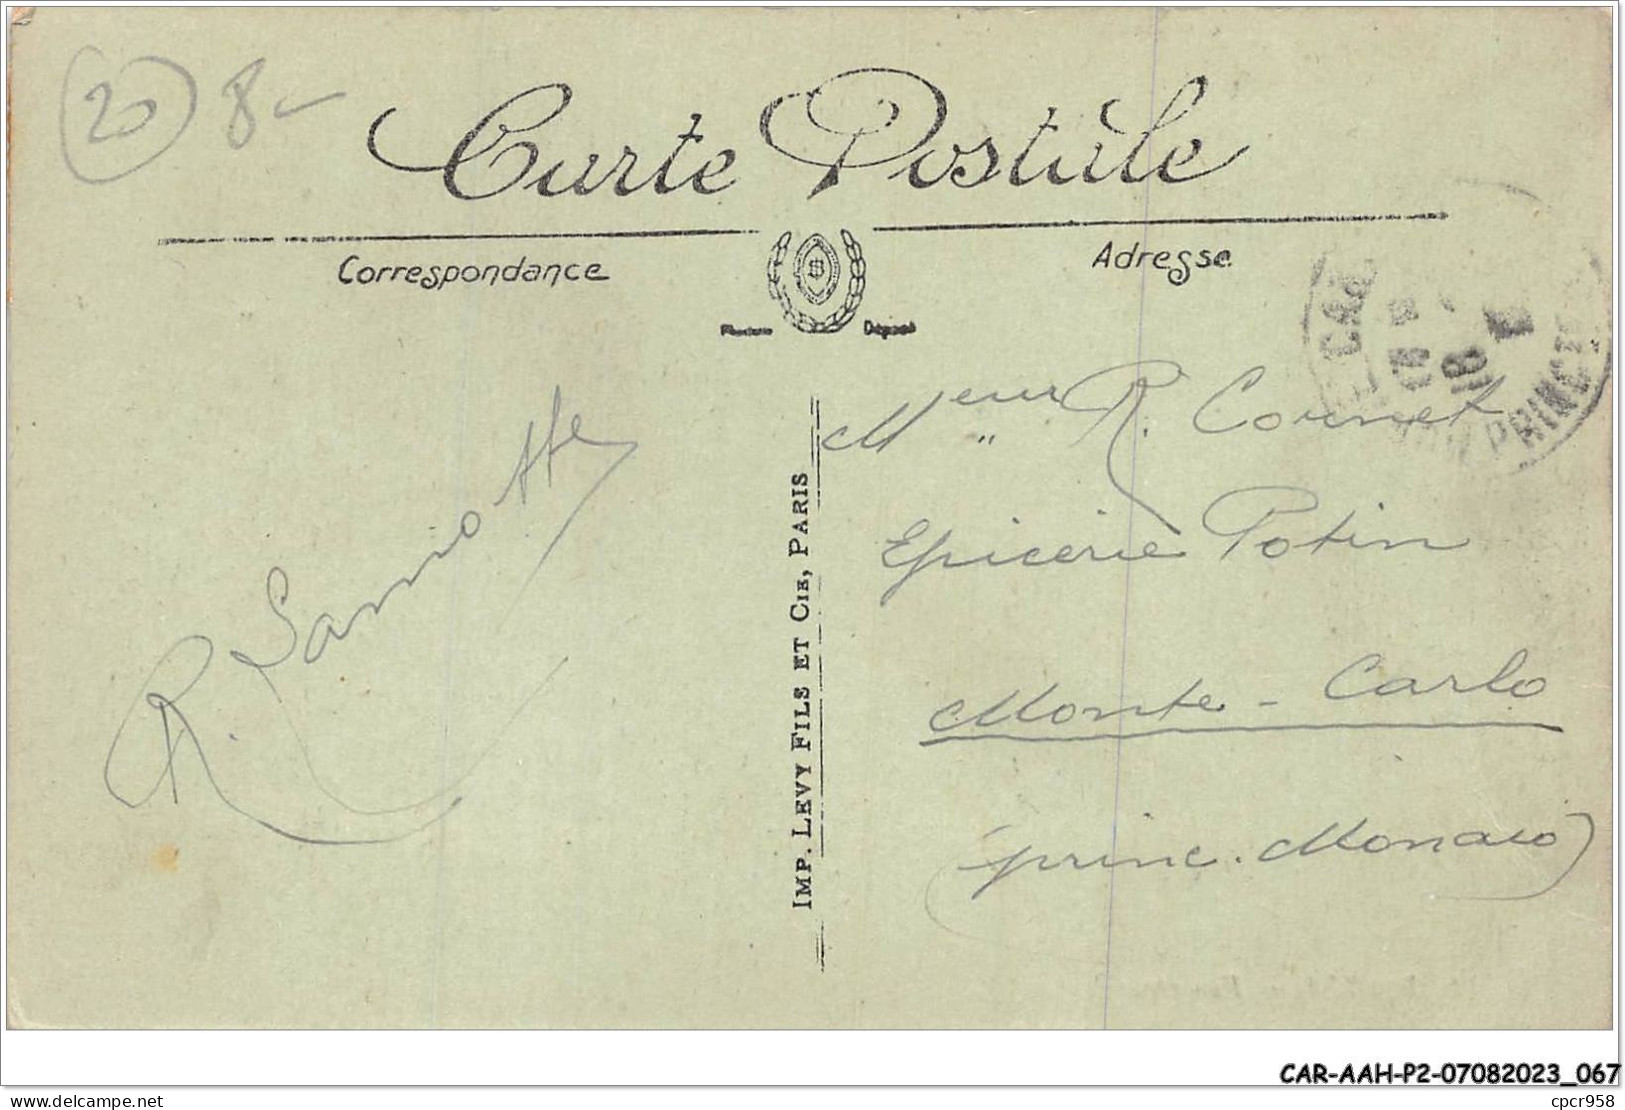 20 8-
Carte Postale
Correspondance
Adresse
Déposé
IMP. LEVY FILS ET CIE, PARIS
Meur R. Cornet
Epicerie Potin
Monte-Carlo
(princ. Monaco)
R. Lamotte
CAR
18
PRINCIP
CAR-AAH-P2-07082023_067
delcampe.net
cpcr958